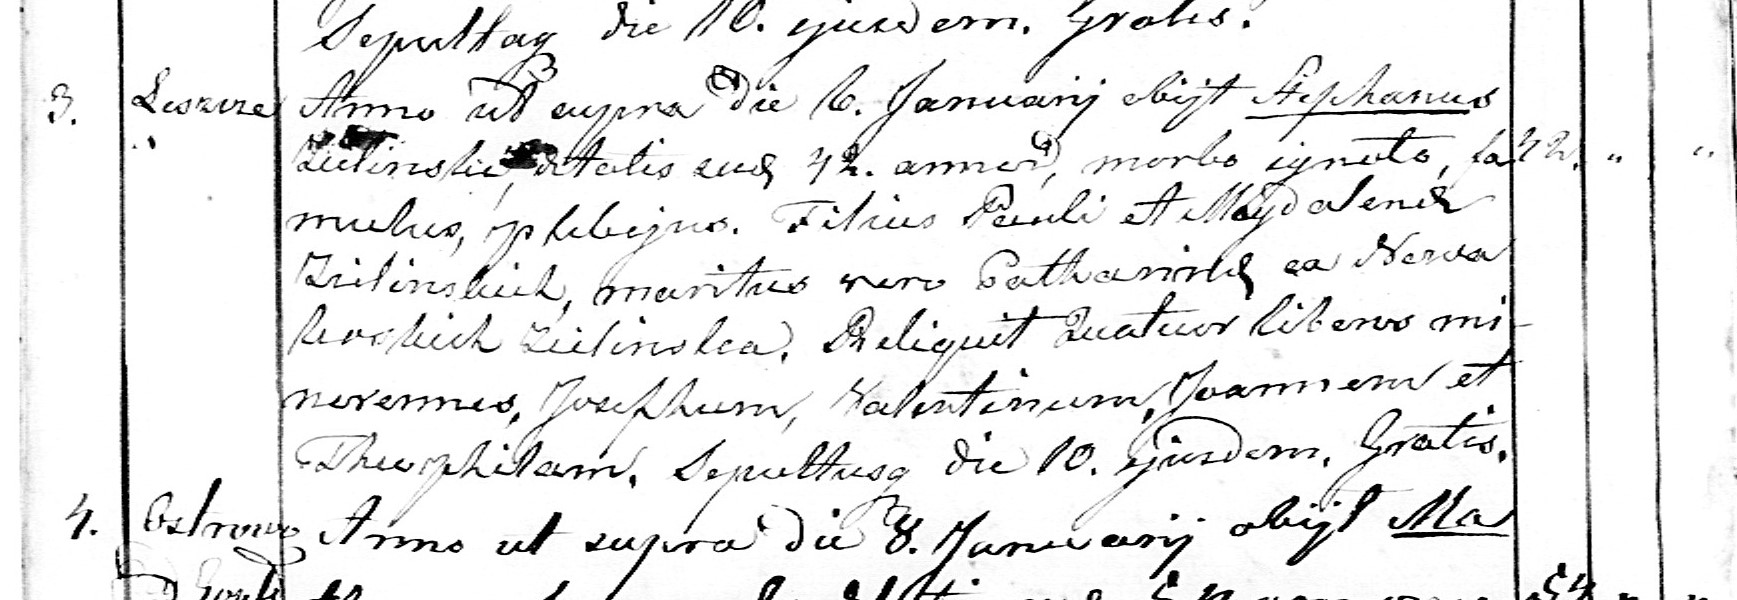 Sepultaq die 10. ejusdem. Gratis.
3. Leszcze Anno ut supra die 6. Januarij obijt Stephanus
Zielinski, ætatis suæ 42. annor, morbo ignoto, fa 42. " "
mulus, plebejus. Filius Pauli et Magdalenæ
Zielinskich, maritus vero Catharinæ ea Nowa
koskich Zielinska. Reliquit Quatuor liberos mi-
norennes, Josephum, Valentinum, Joannem et
Theophilam. Sepultusq die 10. Ejusdem. Gratis.
4. Ostrowo Anno ut supra die 8. Januarij obijt Ma